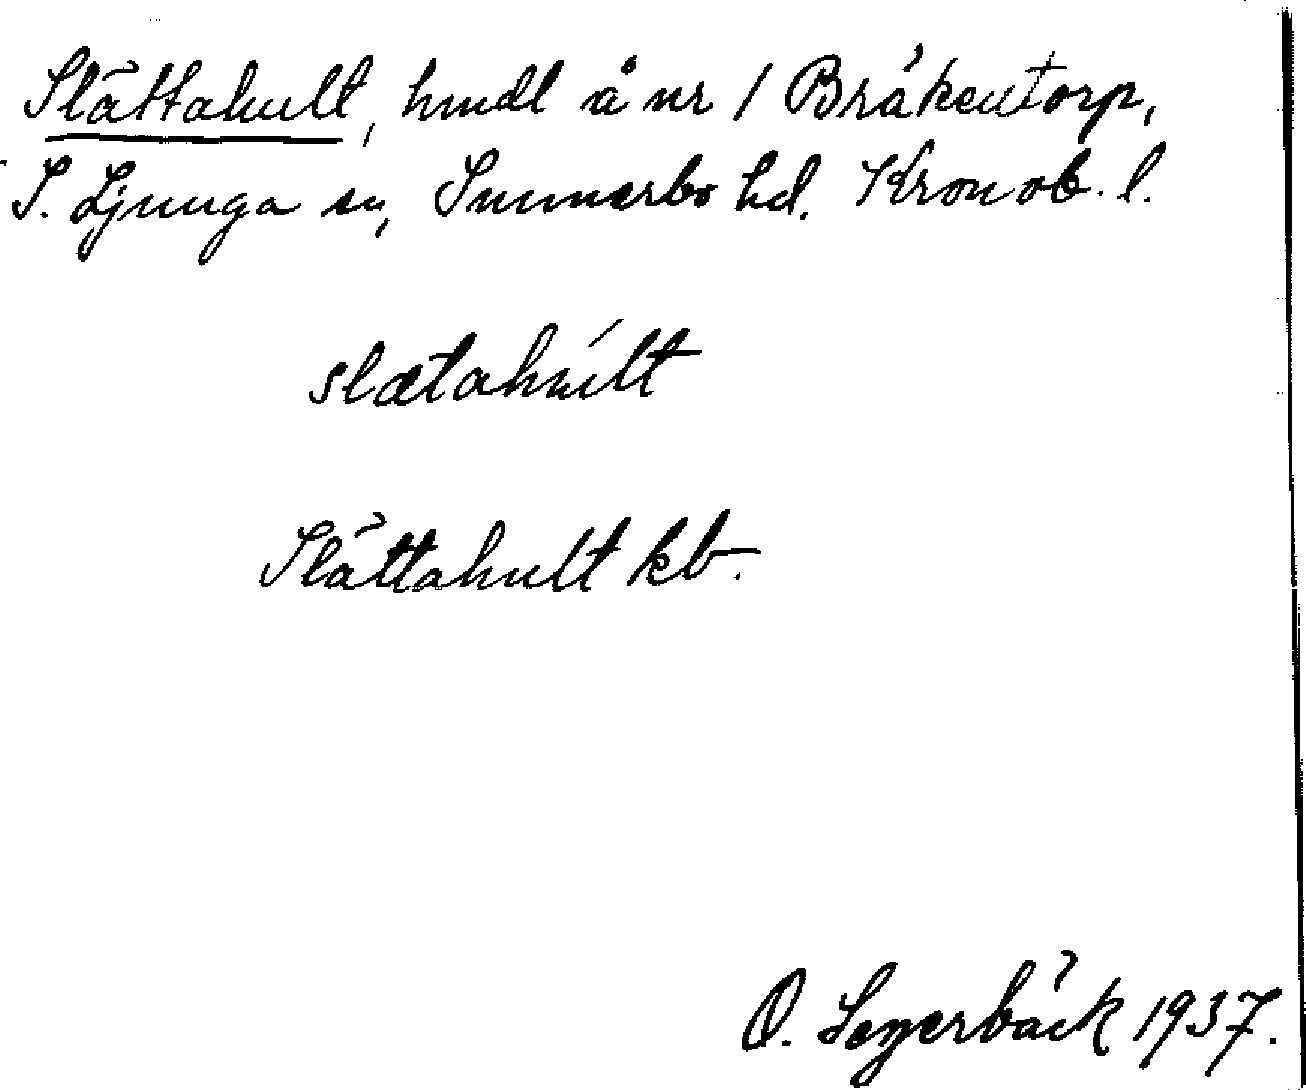 Slättahult, hmdl å nr 1 Bråkentorp,
S. Ljunga sn, Sunnerbo hd. Kronob. l.
slætahúlt
Slättahult kb.
O. Segerbäck 1937.